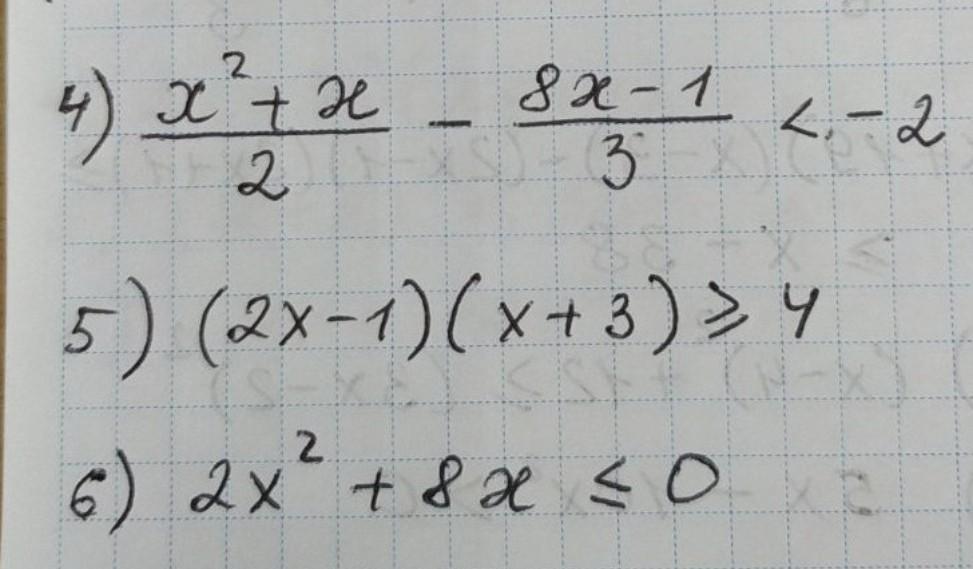 4) \frac{x^2 + x}{2} - \frac{8x - 1}{3} < -2
5) (2x - 1)(x + 3) ≥ 4
6) 2x^2 + 8x ≤ 0